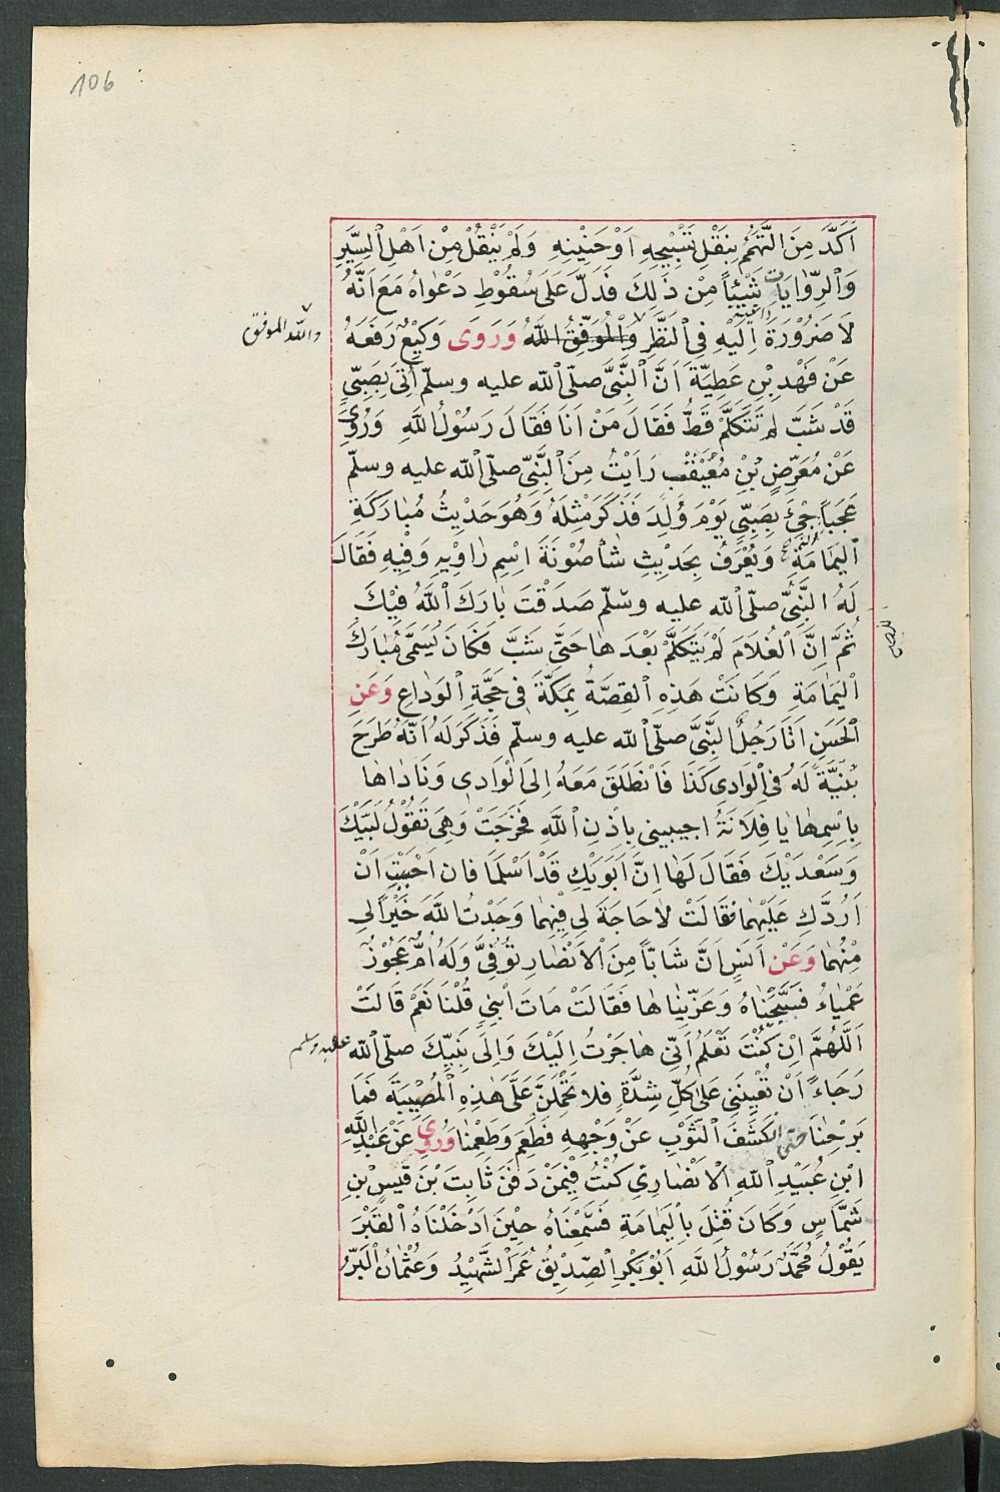 106
اَكَّدَ مِنَ التَّهَمُّمِ بِنَقْلِ تَسْبِيحِهِ اَوْ حَنِيْنِهِ وَلَمْ يَنْقُلْ مِنْ اَهْلِ السِّيَرِ
وَالرِّوَايَاتِ شَيْئاً مِنْ ذَلِكَ فَدَلَّ عَلَى سُقُوْطِ دَعْوَاهُ مَعَ اَنَّهُ
لَا ضَرُوْرَةَ داعية اِلَيْهِ فِى النَّظَرِ وَالْمُوَفِّقُ اللّهُ وَرَوَى وَكِيْعٌ رَفَعَهُ
والله الموفق
عَنْ فَهْدِ بْنِ عَطِيَّةَ اَنَّ النَّبِىَّ صلّى الله عليه وسلّم اُتِىَ بِصَبِىٍّ
قَدْ شَبَّ لَمْ تَتَكَلَّمْ قَطُّ فَقَالَ مَنْ اَنَا فَقَالَ رَسُوْلُ اللّهِ وَرُوِىَ
عَنْ مُعَرِّضِ بْنِ مُعَيْقِب رَاَيْتُ مِنَ النَّبِىِّ صلّى الله عليه وسلّم
عَجَباً جِئَ بِصَبِىٍّ يَوْمَ وُلِدَ فَذَكَرَ مِثْلَهُ وَهُوَ حَدِيْثُ مُبَارَكَةِ
الْيَمَامَةِ وَيُعْرَفُ بِحَدِيْثِ شَاصُوْنَةَ اِسِمِ رَاوِيْهِ وَفِيهِ فَقَالَ
لَهُ النَّبِىُّ صلّى الله عليه وسّلم صَدَقْتَ بَارَكَ اللّهُ فِيْكَ
ثُمَّ اِنَّ الْغُلَامَ لَمْ يَتَكَلَّمْ بَعْدَهَا حَتَّى شَبَّ فَكَانَ يُسَمَّى مُبَارَكَ
الْيَمَامَةِ وَكَانَتْ هَذِهِ الْقِصَّةُ بِمَكَّةَ فِى حَجَّةِ الْوَدَاعِ وَعَنِ
الْحَسَنِ اَتَا رَجُلٌ النَّبِىَّ صلّى الله عليه وسلّم فَذَكَرَ لَهُ اَنَّهُ طَرَحَ
بُنَيَّةً لَهُ فِى الْوَادِى كَذَا فَانْطَلَقَ مَعَهُ اِلَى الْوَادِى وَنَادَاهَا
بِاِسِمِهَا يَا فِلَانَةُ اجيبينى بِاِذْنِ اللّهِ فَخَرَجَتْ وَهِىَ تَقُوْلُ لَبَّيْكَ
وَسَعْدَيْكَ فَقَالَ لَهَا اِنَّ اَبَوَيْكِ قَدْ اَسْلَمَا فان اَحْبَبْتِ اَنْ
اَرُدَّكِ عَلَيْهِمَا فَقَالَتْ لَاحَاجَةَ لِى فِيْهِمَا وَجَدْتُ اللّهَ خَيْراً لِى
مِنْهُمَا وَعَنْ اَنَسٍ اَنَّ شَابّاً مِنَ الْاَنْصَارِ تُوُفِّىَ وَلَهُ اُمٌّ عَجُوْزٌ
عَمْيَاءُ فَسَجَّيْنَاهُ وَعَزَّيْنَاهَا فَقَالَتْ مَاتَ اَبْنِى قُلْنَا نَعَمْ قَالَتْ
اَللّهُمَّ اِنْ كُنْتَ تَعْلَمُ اَنِّى هَاجَرْتُ اِلَيْكَ وَاِلَى نَبِيِّكَ صلّى الله عليه وسلم
رَجَاءً اَنْ تُعِيْنَنِى عَلَى كُلِّ شِدَّةٍ فلا تَحْمِلَنَّ عَلَىَّ هَذِهِ الْمُصِيْبَةَ فَمَا
بَرِحْنَا حتى كَشَفَ الثَّوْبِ عَنْ وَجْهِهِ فَطَعِمَ وَطَعِمْنَا وَرُوِىَ عَنْ عَبْدِ اللّهِ
ابْنِ عُبَيْدِ اللّهِ الْاَنْصَارِىِّ كُنْتُ فِيْمَنْ دَفَنَ ثَابِتَ بْنَ قَيْسِ بْنِ
شَمَّاسٍ وَكَانَ قُتِلَ بِالْيَمَامَةِ فَسَمِعْنَاهُ حِيْنَ اَدْخَلْنَاهُ الْقَبْرَ
يَقُوْلُ مُحَمَّدٌ رَسُوْلُ اللّهِ اَبُوْ بَكْرٍ الصِّدِيْقُ عُمَرُ الشَّهِيْدُ وَعُثْمَانُ الْبَرُّ